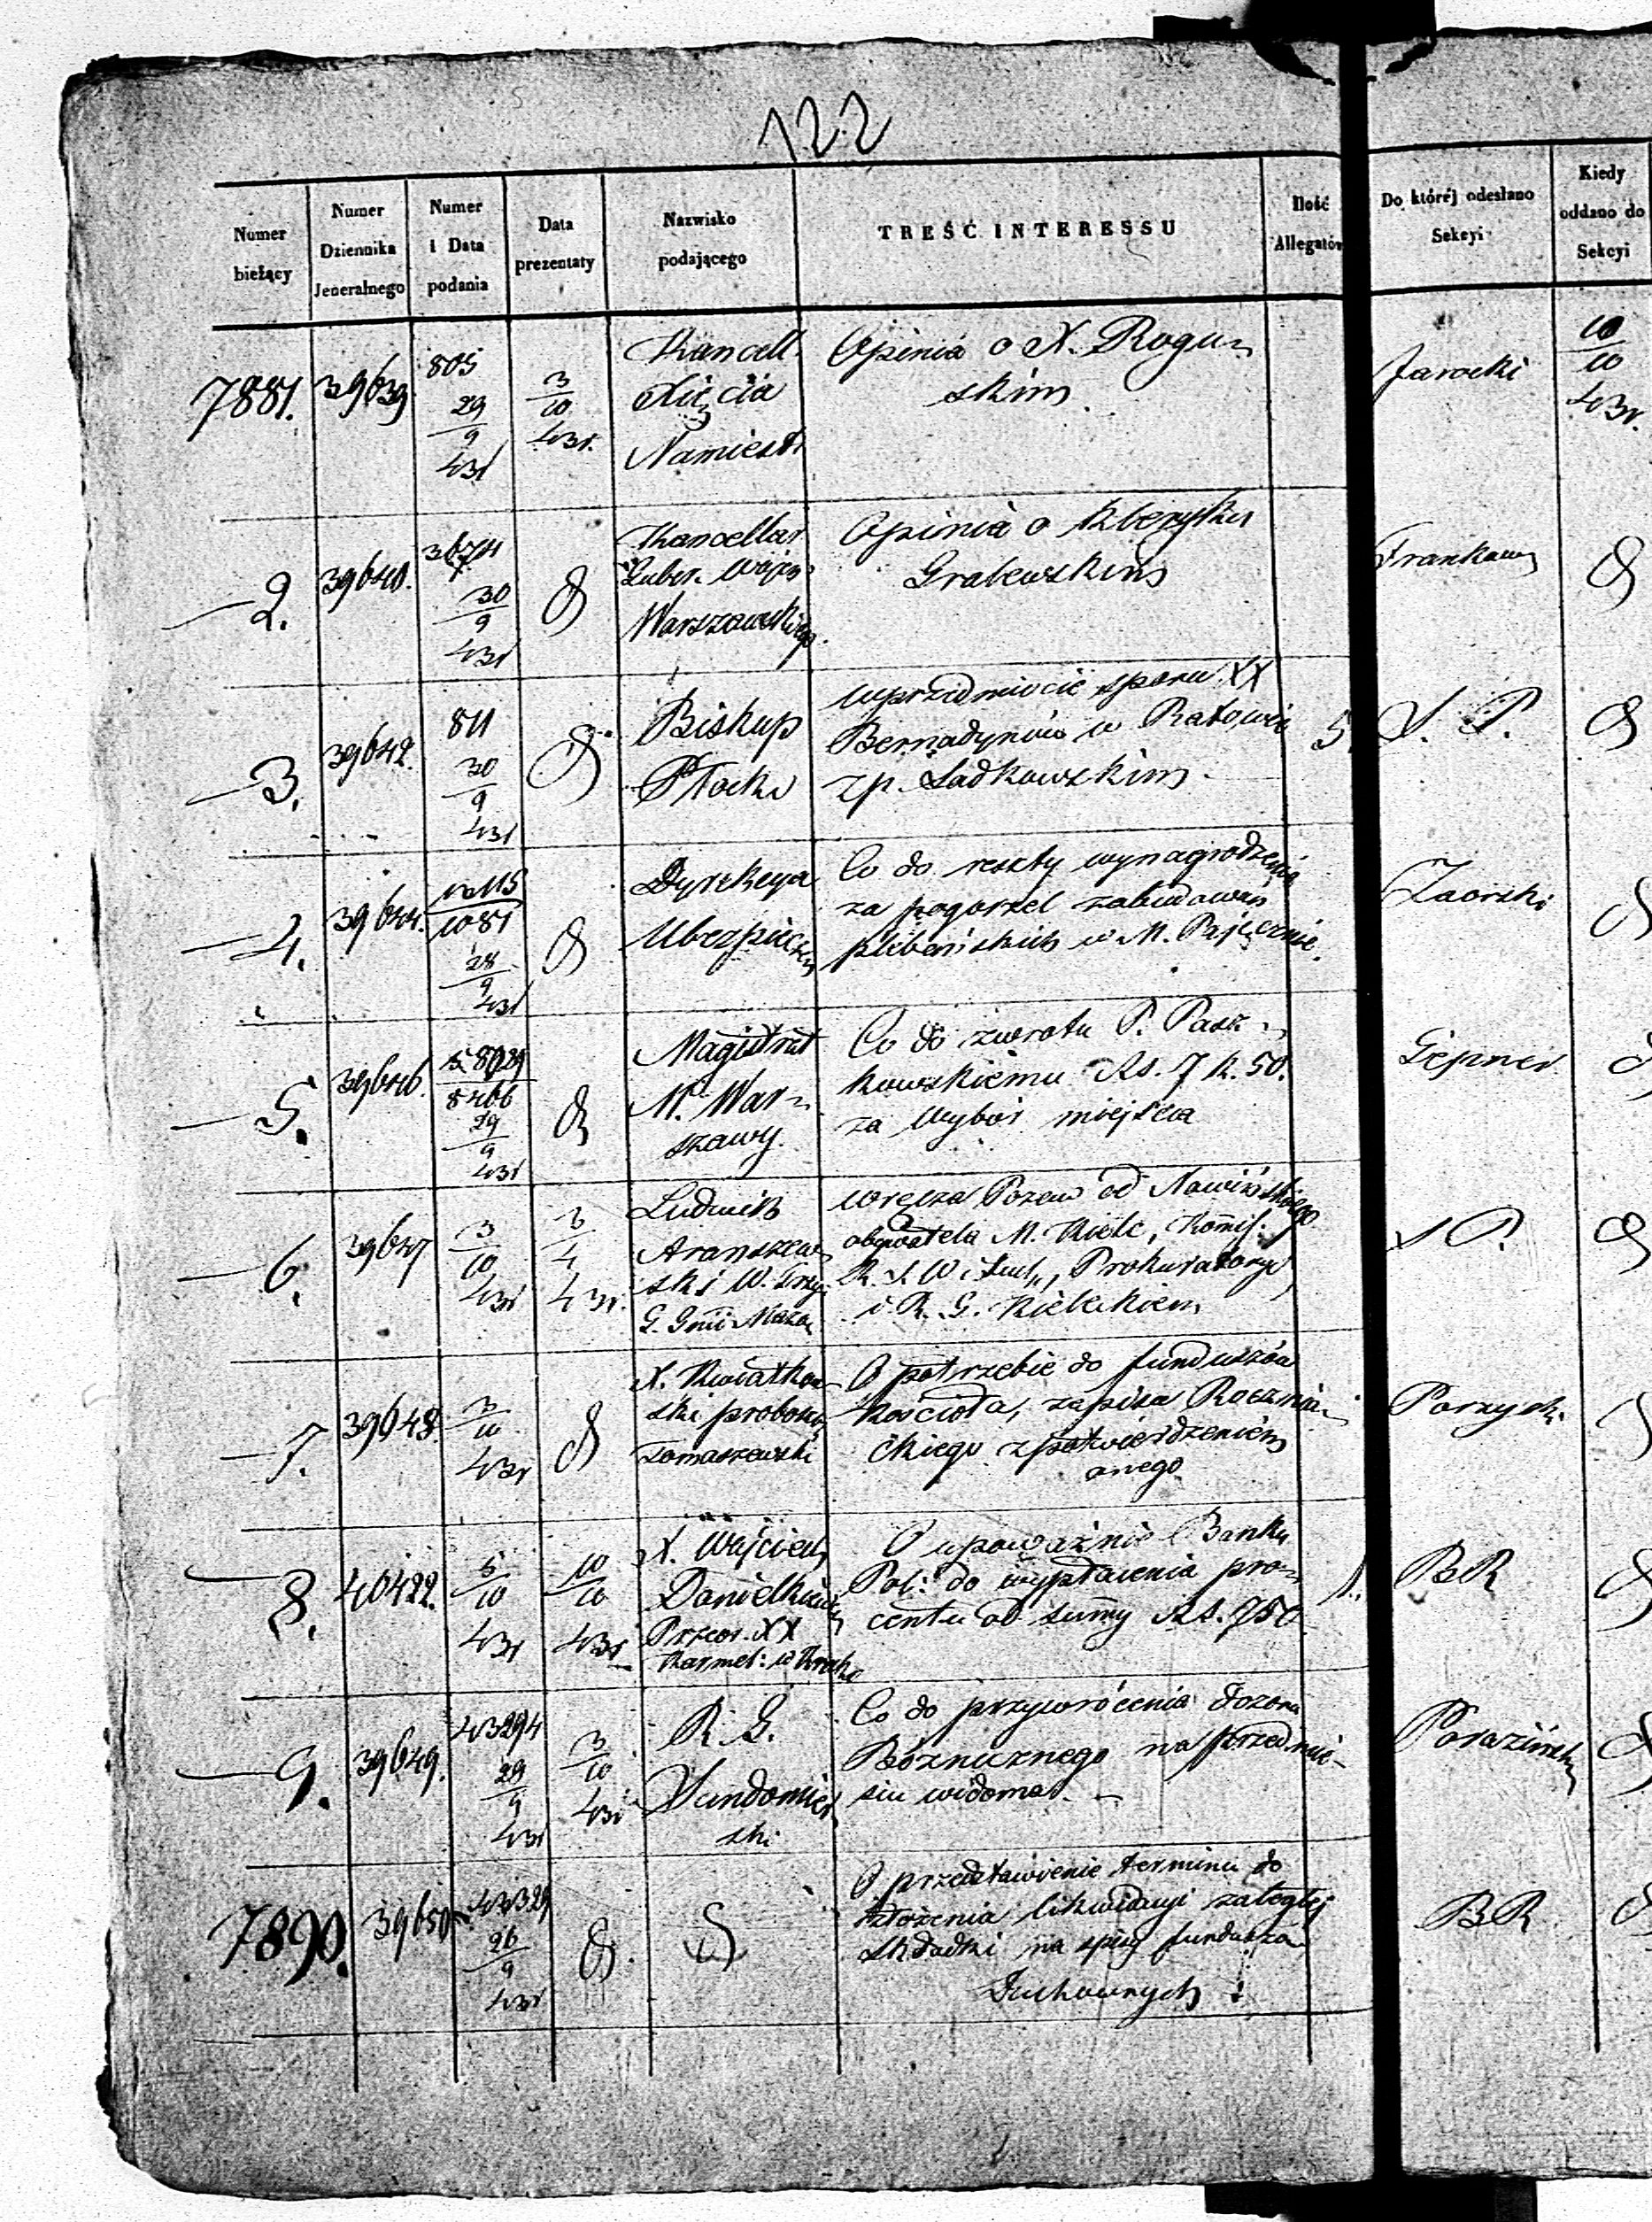 122
Numer bieżący
Numer Dziennika Jeneralnego
Numer i Data podania
Data prezentaty
Nazwisko podającego
TREŚĆ INTERESSU
Ilość Allegatów
Do któréj odesłano Sekcyi
Kiedy oddano do Sekcyi
7881. 39639 805 29/9 431 3/10 431.
Kancell.
Xięcia
Namiest.
Opinia o X. Rogu-
skim
Jarocki 10/10 431.
2. 39640. 3674 30/9 431
Kancellar
Guber. Wojen
Warszawskiego.
Opinia o Kleryku
Grabewskim
3. 39642. 811 30/9 431
Biskup
Płocki
w przedmiocie sporu XX
Bernadynów w Ratowie
z p. Ladkowskim
5
S. P.
4. 39644. 1081 28/9 431
Dyrekcya
Ubezpieczeń
Co do reszty wynagrodzenia
za pogorzel zabudowań
plebańskich w M. Pajęcznie.
Zaorski
5. 39646. 8466 29/9 431
Magistrat
M. War-
szawy.
Co do zwrotu P. Pasz-
kowskiemu Rs. 7 k. 50.
za wybór miejsca
Gepner
6. 39647 3/10 431 3/4 431.
Ludwik
ski W.
wręcza Pozew od
obywatela M. Kielc, Komis:
Prokuratoryi
i R. G. Kieleckiem
S P.
7. 39648. 3/10 431
X. Kwiatkow
ski proboszcz
Tomaszewski
O potrzebie do funduszów
kościoła, zapisu
ckiego z potwierdzeniem
onego
8. 40422. 5/10 431 10/10 431
X. Wojciech
Przeor. XX
Karmel: w Krako
O upoważnie Banku
Pol: do wypłacenia pro-
centu od summy Rs. 750
1.
BR
9. 39649. 43294 29/9 431 3/10 431
R. G.
Sandomier
ski
Co do przywrócenia dozoru
Bóżnicznego na przedmie-
ściu
Poraziński
7890. 39650. 26/9 431
O przedstawienie terminu do
złożenia likwidacyi zaległej
składki na funduszu
Duchownych
BR